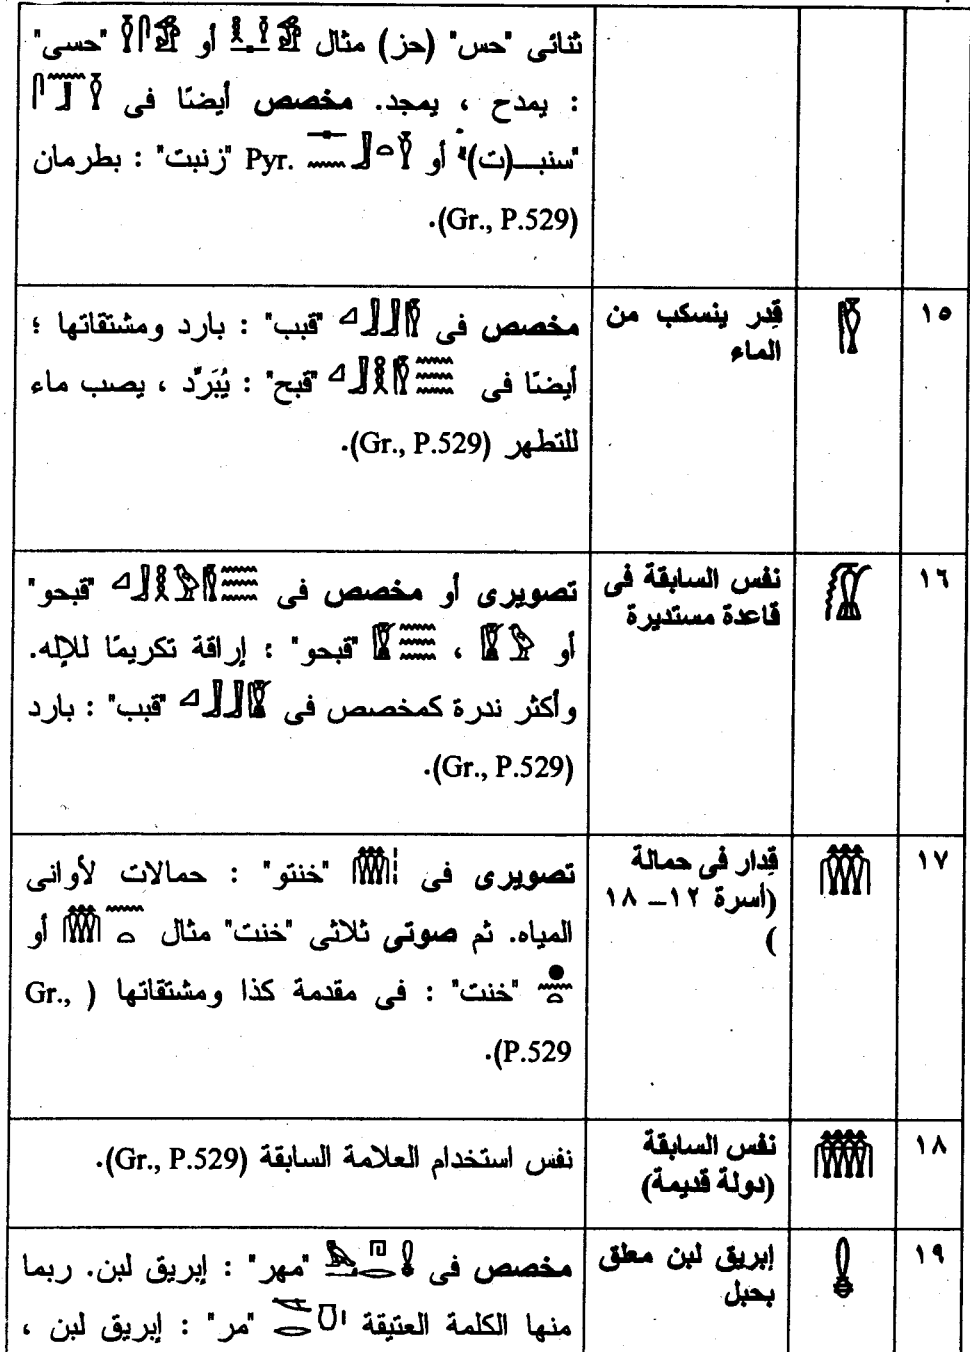 ثنائى "حس" (حز) مثال أو "حسى"
: يمدح ، يمجد. مخصص أيضًا فى
"سنبـ(ت)" أو Pyr. "زنبت" : بطرمان
(Gr., P.529).
١٥
قِدر ينسكب من
الماء
مخصص فى "قبب" : بارد ومشتقاتها ؛
أيضًا فى "قبح" : يُبَرِّد ، يصب ماء
للتطهر (Gr., P.529).
١٦
نفس السابقة فى
قاعدة مستديرة
تصويرى أو مخصص فى "قبحو"
أو ، "قبحو" : إراقة تكريمًا للإله.
وأكثر ندرة كمخصص فى "قبب" : بارد
(Gr., P.529).
١٧
قِدار فى حمالة
(أسرة ١٢ــ ١٨
)
تصويرى فى "خنتو" : حمالات لأوانى
المياه. ثم صوتى ثلاثى "خنت" مثال أو
"خنت" : فى مقدمة كذا ومشتقاتها (Gr.,
P.529).
١٨
نفس السابقة
(دولة قديمة)
نفس استخدام العلامة السابقة (Gr., P.529).
١٩
إبريق لبن معلق
بحبل
مخصص فى "مهر" : إبريق لبن. ربما
منها الكلمة العتيقة "مر" : إبريق لبن ،